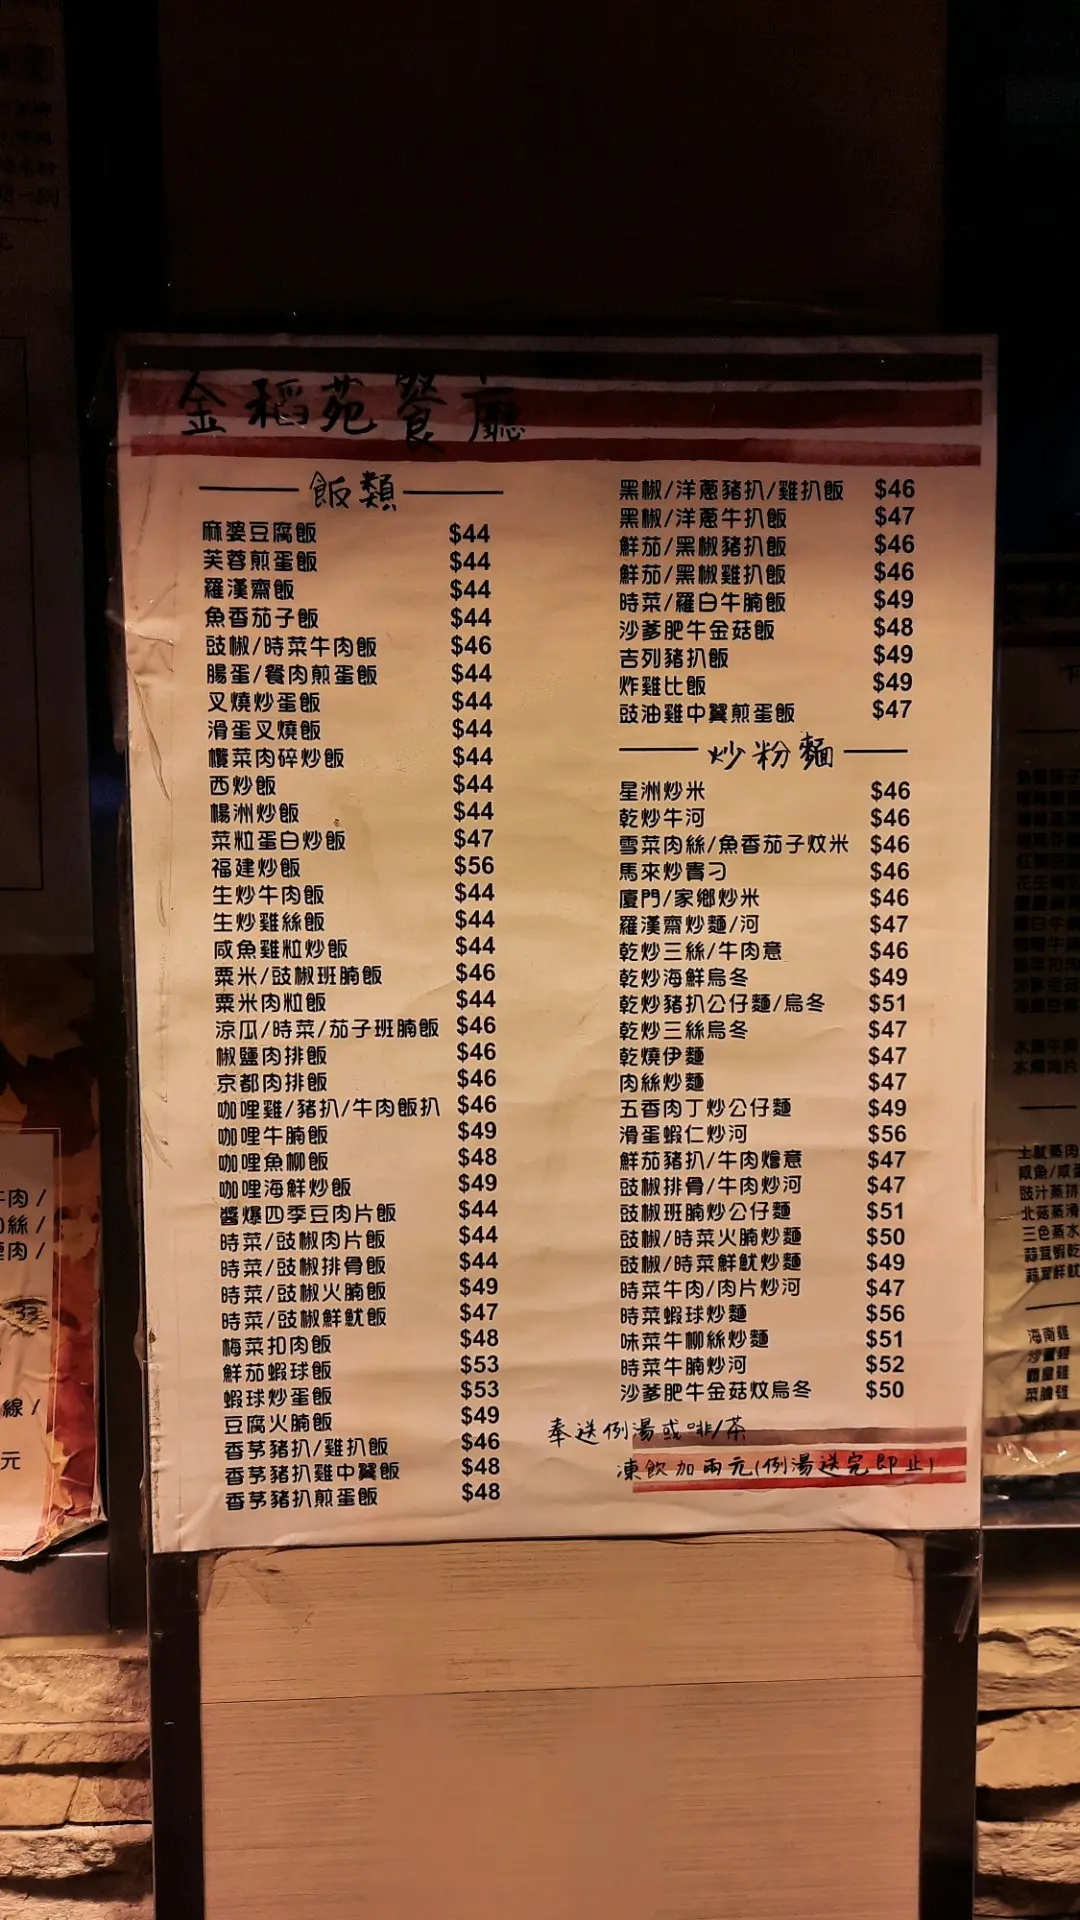 金稻苑餐廳
飯類
麻婆豆腐飯 $44
芙蓉煎蛋飯 $44
羅漢齋飯 $44
魚香茄子飯 $44
豉椒/時菜牛肉飯 $46
腸蛋/餐肉煎蛋飯 $44
叉燒炒蛋飯 $44
滑蛋叉燒飯 $44
欖菜肉碎炒飯 $44
西炒飯 $44
楊洲炒飯 $44
菜粒蛋白炒飯 $47
福建炒飯 $56
生炒牛肉飯 $44
生炒雞絲飯 $44
咸魚雞粒炒飯 $44
粟米/豉椒班腩飯 $46
粟米肉粒飯 $44
涼瓜/時菜/茄子班腩飯 $46
椒鹽肉排飯 $46
京都肉排飯 $46
咖哩雞/豬扒/牛肉飯扒 $46
咖哩牛腩飯 $49
咖哩魚柳飯 $48
咖哩海鮮炒飯 $49
醬爆四季豆肉片飯 $44
時菜/豉椒肉片飯 $44
時菜/豉椒排骨飯 $44
時菜/豉椒火腩飯 $49
時菜/豉椒鮮魷飯 $47
梅菜扣肉飯 $48
鮮茄蝦球飯 $53
蝦球炒蛋飯 $53
豆腐火腩飯 $49
香茅豬扒/雞扒飯 $46
香茅豬扒雞中翼飯 $48
香茅豬扒煎蛋飯 $48
黑椒/洋蔥豬扒/雞扒飯 $46
黑椒/洋蔥牛扒飯 $47
鮮茄/黑椒豬扒飯 $46
鮮茄/黑椒雞扒飯 $46
時菜/羅白牛腩飯 $49
沙爹肥牛金菇飯 $48
吉列豬扒飯 $49
炸雞比飯 $49
豉油雞中翼煎蛋飯 $47
炒粉麵
星洲炒米 $46
乾炒牛河 $46
雪菜肉絲/魚香茄子炆米 $46
馬來炒貴刁 $46
廈門/家鄉炒米 $46
羅漢齋炒麵/河 $47
乾炒三絲/牛肉意 $46
乾炒海鮮烏冬 $49
乾炒豬扒公仔麵/烏冬 $51
乾炒三絲烏冬 $47
乾燒伊麵 $47
肉絲炒麵 $47
五香肉丁炒公仔麵 $49
滑蛋蝦仁炒河 $56
鮮茄豬扒/牛肉燴意 $47
豉椒排骨/牛肉炒河 $47
豉椒班腩炒公仔麵 $51
豉椒/時菜火腩炒麵 $50
豉椒/時菜鮮魷炒麵 $49
時菜牛肉/肉片炒河 $47
時菜蝦球炒麵 $56
味菜牛柳絲炒麵 $51
時菜牛腩炒河 $52
沙爹肥牛金菇炆烏冬 $50
奉送例湯或啡/茶
凍飲加兩元(例湯送完即止)